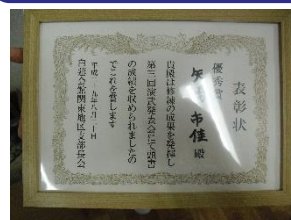 表彰状
優秀賞
殿
貴殿は修練の成果を発揮し
第三回演武発表会にて頭書
の演績を収められましたの
でここを賞します
平成二九年八月二十日
関東地区支部長会